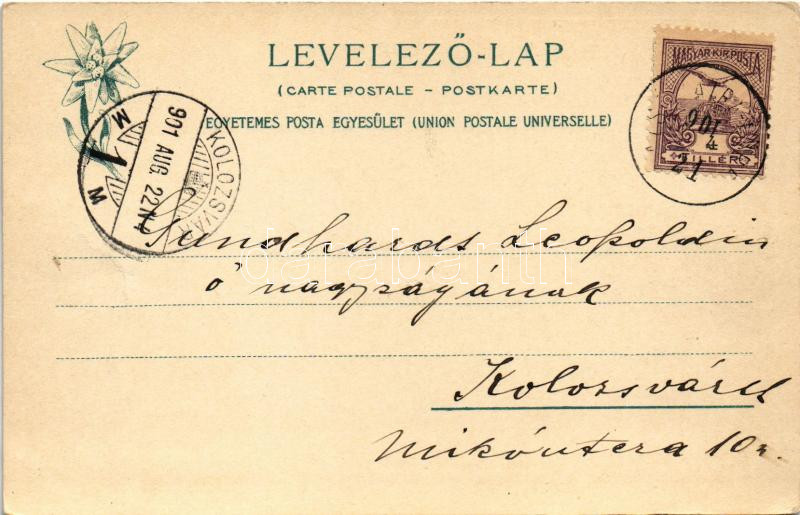 LEVELEZŐ-LAP
(CARTE POSTALE – POSTKARTE)
EGYETEMES POSTA EGYESÜLET (UNION POSTALE UNIVERSELLE)
MAGYAR·KIR·POSTA
4
FILLÉR
901
21
KOLOZSVÁR
901 AUG. 22 N4
M 1 M
Leopoldin
ő nagyságának
Kolozsvárt
10
darabanth